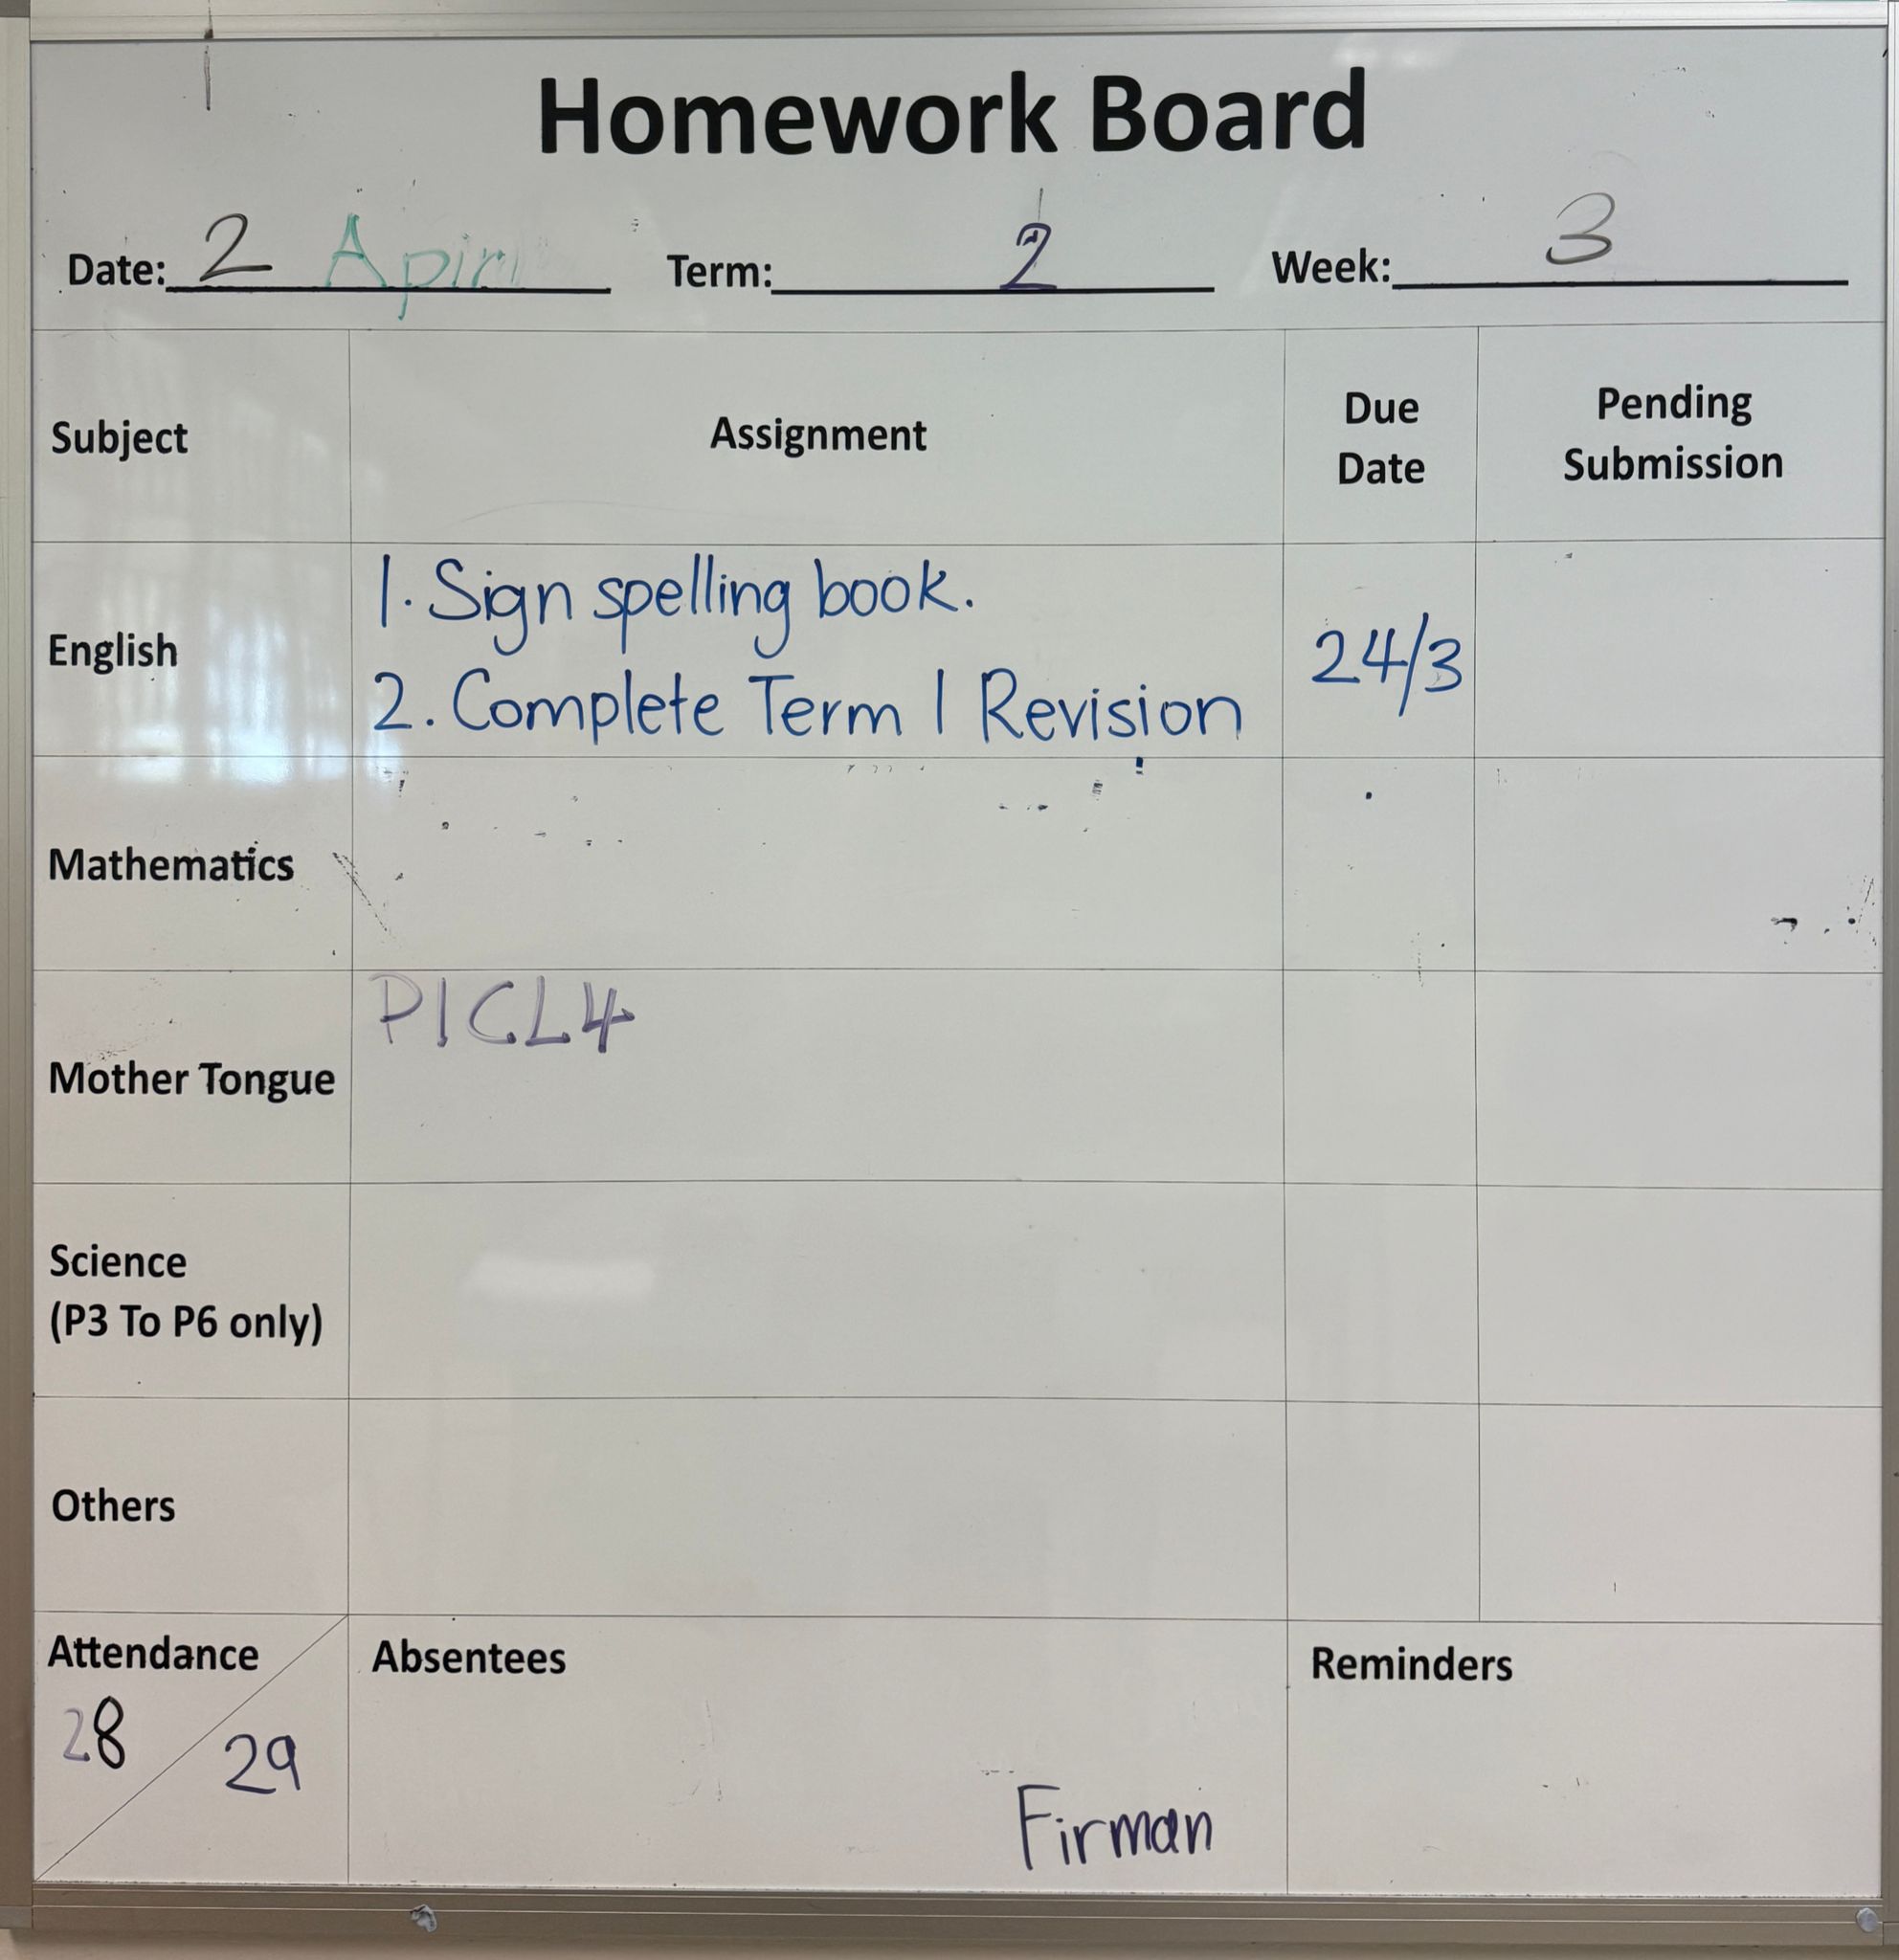 Homework Board
Date: 2 Apirl Term: 2 Week: 3
Subject Assignment Due Date Pending Submission
English
1. Sign spelling book.
2. Complete Term 1 Revision
24/3
Mathematics
Mother Tongue
P1CL4
Science
(P3 To P6 only)
Others
Attendance
28 / 29
Absentees
Firman
Reminders